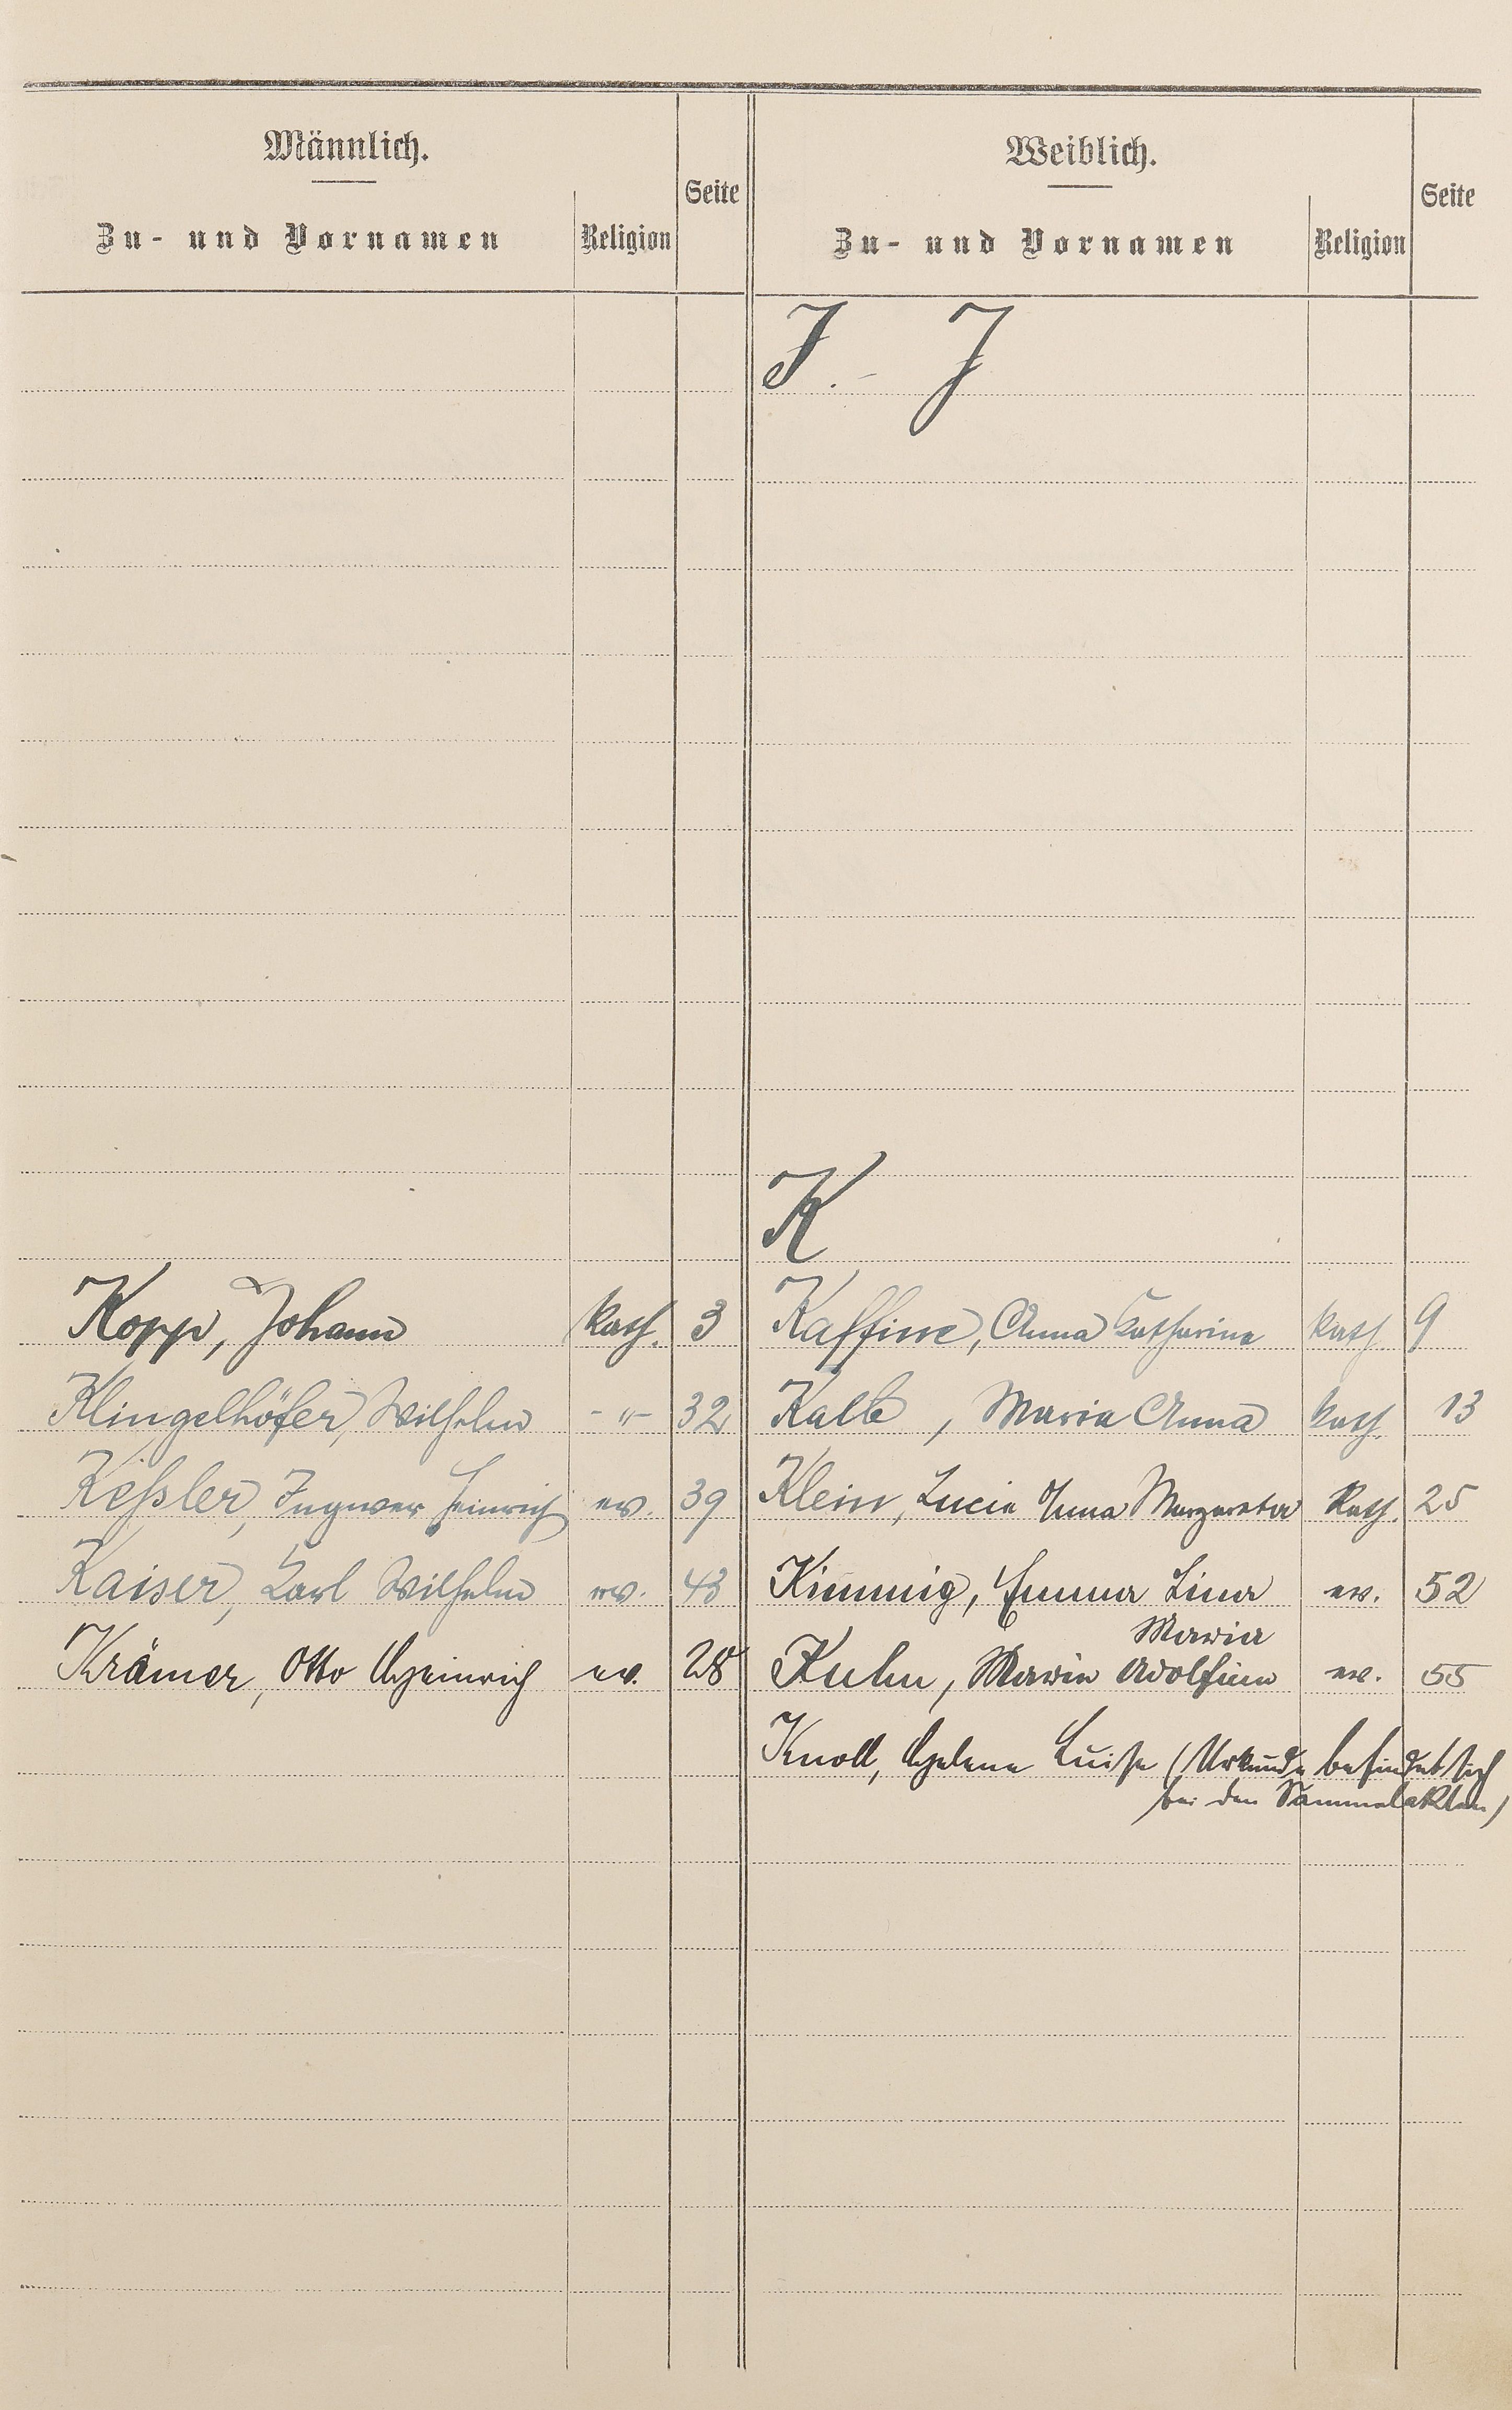 Männlich.
Zu- und Vornamen Religion Seite
Weiblich.
Zu- und Vornamen Religion Seite
I. - J
K
Kopp, Johann kath. 3
Kaffine, Anna Katharina kath. 9
Klingelhöfer, Wilhelm - " - 32
Kalb, Maria Anna kath. 13
Keßler, Ingwer Heinrich ev. 39
Klein, Lucia Anna Margareta Kath. 25
Kaiser, Karl Wilhelm ev. 43
Kimmig, Emma Lina ev. 52
Maria
Krämer, Otto Heinrich ev. 28
Kuhn, Maria Adolfine ev. 55
Knoll, Helene Luise (Urkunde befindet sich
bei den Sammelakten)